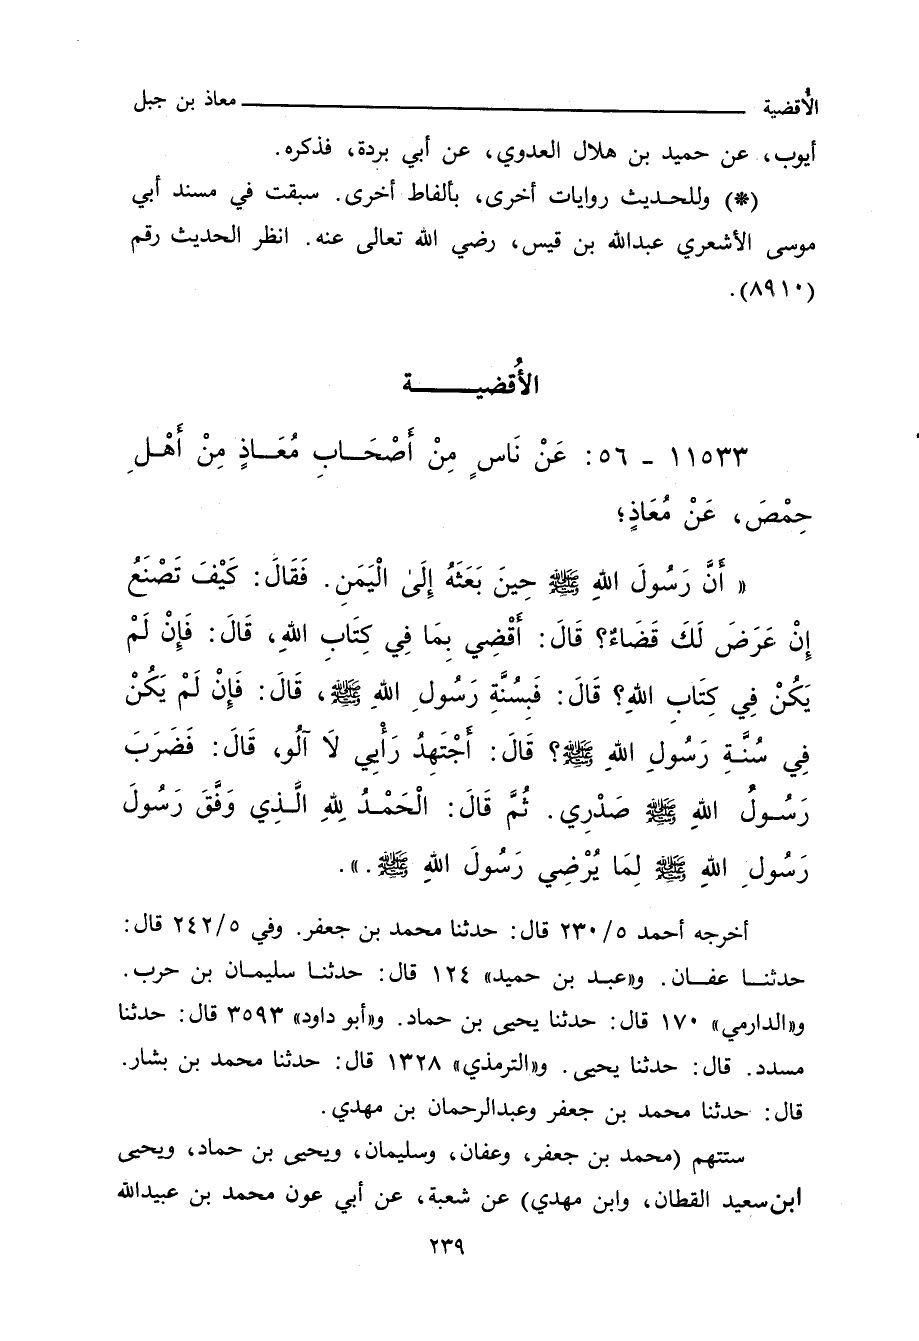 الأقضية ــــــــــــــــ معاذ بن جبل
أيوب، عن حميد بن هلال العدوي، عن أبي بردة، فذكره.
(*) وللحديث روايات أخرى، بألفاط أخرى. سبقت في مسند أبي
موسى الأشعري عبدالله بن قيس، رضي الله تعالى عنه. انظر الحديث رقم
(٨٩١٠).
الأُقضيــــــــة
١١٥٣٣ - ٥٦: عَنْ نَاسٍ مِنْ أَصْحَابِ مُعَاذٍ مِنْ أَهْلِ
حِمْصَ، عَنْ مُعَاذٍ؛
« أَنَّ رَسُولَ اللهِ ﷺ حِينَ بَعَثَهُ إِلَىٰ الْيَمَنِ. فَقَالَ: كَيْفَ تَصْنَعُ
إِنْ عَرَضَ لَكَ قَضَاءٌ؟ قَالَ: أَقْضِي بِمَا فِي كِتَابِ اللهِ، قَالَ: فَإِنْ لَمْ
يَكُنْ فِي كِتَابِ اللهِ؟ قَالَ: فَبِسُنَّةِ رَسُولِ اللهِ ﷺ، قَالَ: فَإِنْ لَمْ يَكُنْ
فِي سُنَّةِ رَسُولِ اللهِ ﷺ؟ قَالَ: أَجْتَهِدُ رَأْيِي لَا آلُو، قَالَ: فَضَرَبَ
رَسُولُ اللهِ ﷺ صَدْرِي. ثُمَّ قَالَ: الْحَمْدُ لِلهِ الَّذِي وَفَّقَ رَسُولَ
رَسُولِ اللهِ ﷺ لِمَا يُرْضِي رَسُولَ اللهِ ﷺ.».
أخرجه أحمد ٢٣٠/٥ قال: حدثنا محمد بن جعفر. وفي ٢٤٢/٥ قال:
حدثنا عفان. و«عبد بن حميد» ١٢٤ قال: حدثنا سليمان بن حرب.
و«الدارمي» ١٧٠ قال: حدثنا يحيى بن حماد. و«أبو داود» ٣٥٩٣ قال: حدثنا
مسدد. قال: حدثنا يحيى. و«الترمذي» ١٣٢٨ قال: حدثنا محمد بن بشار.
قال: حدثنا محمد بن جعفر وعبدالرحمان بن مهدي.
ستتهم (محمد بن جعفر، وعفان، وسليمان، ويحيى بن حماد، ويحيى
ابن سعيد القطان، وابن مهدي) عن شعبة، عن أبي عون محمد بن عبيدالله
٢٣٩